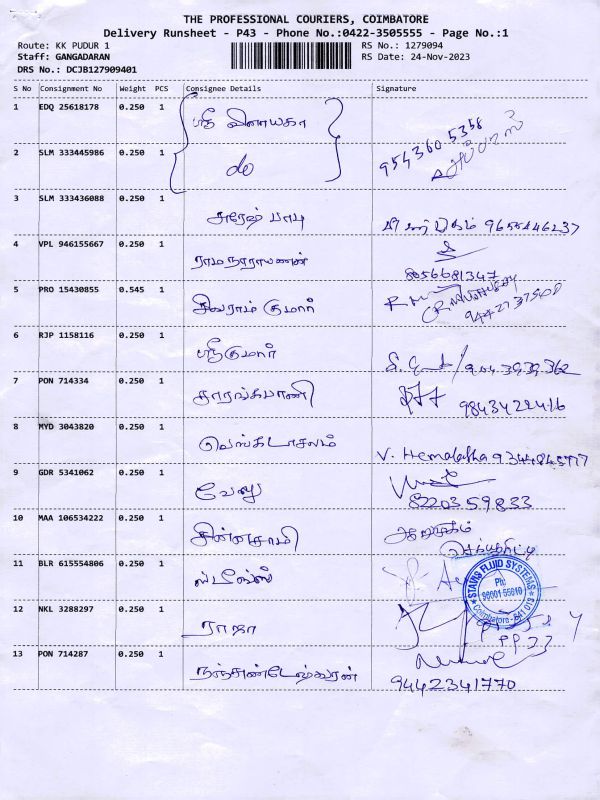 THE PROFESSIONAL COURIERS, COIMBATORE
Delivery Runsheet - P43 - Phone No.:0422-3505555 - Page No.:1
Route: KK PUDUR 1 RS No.: 1279094
Staff: GANGADARAN RS Date: 24-Nov-2023
DRS No.: DCJB127909401
S No Consignment No Weight PCS Consignee Details Signature
1 EDQ 25618178 0.250 1 ஸ்ரீ விநாயகா 954360 5358
2 SLM 333445986 0.250 1 do
3 SLM 333436088 0.250 1 சுரேஷ் பாபு
4 VPL 946155667 0.250 1 ராமநாராயணன் 8056681347
5 PRO 15430855 0.545 1 சிவராம் குமார்
6 RJP 1158116 0.250 1 ஸ்ரீகுமார்
7 PON 714334 0.250 1 சாரங்கபாணி 9843422416
8 MYD 3043820 0.250 1 வெங்கடாசலம் V. Hemalatha
9 GDR 5341062 0.250 1 வேலு 8220359833
10 MAA 106534222 0.250 1 சின்னசாமி ஆறுமுகம்
செக்யூரிட்டி
11 BLR 615554806 0.250 1
STAIRS FLUID SYSTEMS
Ph:
Coimbatore - 641 013
12 NKL 3288297 0.250 1 ராஜா
13 PON 714287 0.250 1 நஞ்சுண்டேஸ்வரன் 9442341770